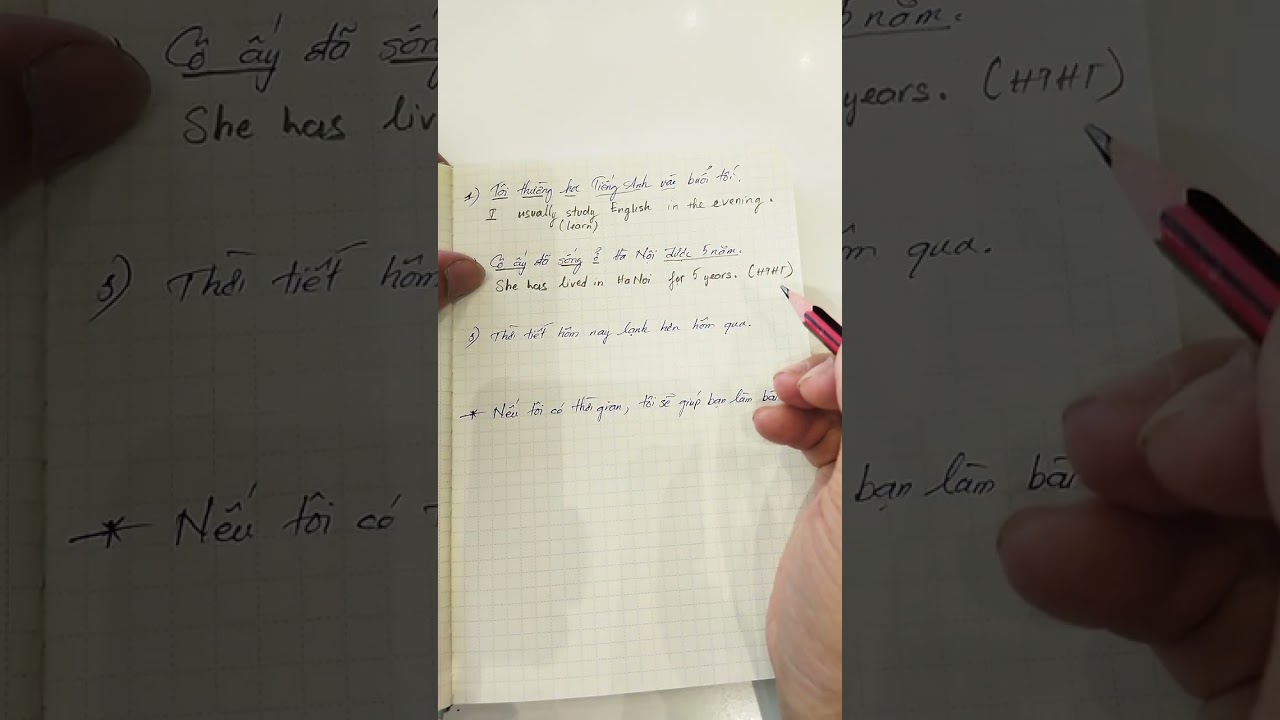 1) Tôi thường học Tiếng Anh vào buổi tối.
I usually study English in the evening.
(learn)
Cô ấy đã sống ở Hà Nội được 5 năm.
She has lived in Ha Noi for 5 years. (HTHT)
3) Thời tiết hôm nay lạnh hơn hôm qua.
* Nếu tôi có thời gian, tôi sẽ giúp bạn làm bài